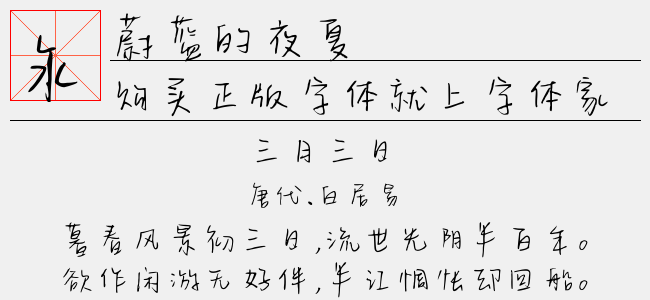 永
蔚蓝的夜夏
购买正版字体就上字体家
三月三日
唐代、白居易
暮春风景初三日,流世光阴半百年。
欲作闲游无好伴,半江惆怅却回船。